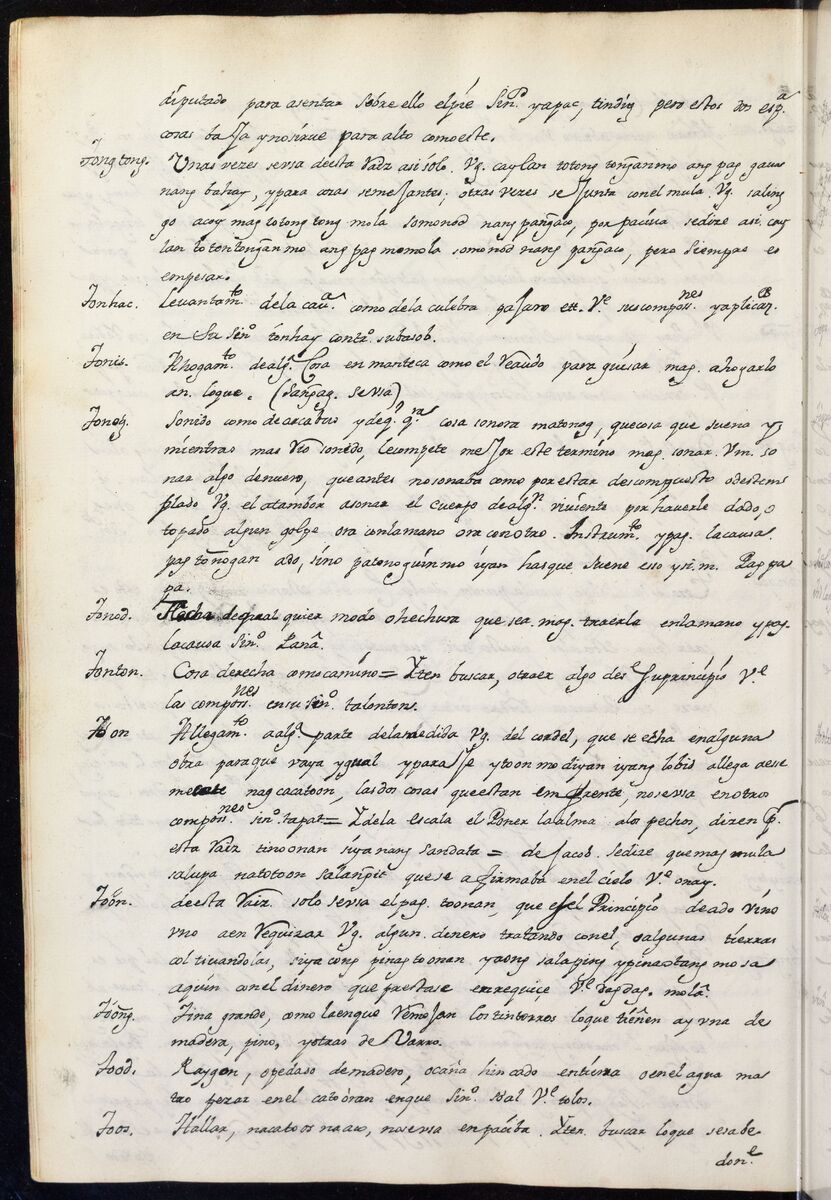 diputado para asentar sobre ello el pie Sin.º yapac, tindig pero estos dos esp.ª
cosas baxa y no sirue para alto como este.
Tongtong. Unas vezes se vsa desta raiz asi solo. Vg. caylan totong tonganmo ang pag gaua
nang bahay, y para cosas semejantes; otras vezes se junta con el mula. Vg. saling
go acoy mag totong tong mola somonod nang pangaco, por pasiua se dize asi. cay
lan totontonganmo ang pag momola somonod nang pangaco, pero siempre es
empesar.
Tonhac. Levantam.to de la cau.ª como de la culebra paxaro ett.ª V.e sus compos.nes y aplicaz.s
en su sin.º tonhay cont.º subasob.
Tonis. Ahogam.to de alg.ª Cosa en manteca como el venado para guisar mag. ahogarlo
an. lo que. (Sangag. se vsa)
Tonog. Sonido como de arcabus y de q.l q.ra cosa sonora matonog, que cosa que suena y
mientras mas Vto sonido, le compete mejor este termino mag. sonar. Vm. so
nar algo de nueuo, que antes no sonaba como por estar descompuesto o destem
plado Vg. el atambor asonar el cuerpo de alg.n viviente por haverle dado, o
topado algun golpe ora con la mano ora con otro. Instrum.to ypag. la causa.
pag tonogan ado, sino patonoguin mo iyan has que suene eso y si. m. Pag pa
pa.
Tonod. Flecha de qual quier modo o hechura que sea. mag. traerla en la mano ypag.
la causa Sin.º Pana.
Tonton. Cosa derecha como camino = Yten buscar, o traer algo des.e su principio V.e
las compos.nes en su sin.º talonton.
Toon Allegam.to a alg.ª parte de la medida Vg. del cordel, que se echa en alguna
obra para que vaya ygual y para se ytoon mo diyan iyang lobid allega a ese
mecate nag cacatoon, las dos cosas que estan em frente, no se vsa en otras
compos.nes sin.º tapat = Y de la escala el Poner la alma a los pechos, dizen p.
esta raiz tinoonan siya nang sandata = de Jacob. se dize que may mula
sa lupa natotoon sa langit que se afirmaba en el cielo V.e onay.
Toon. de esta raiz solo se vsa el pag. toonan, que es el Principio de ado vino
vno a enrequizar Vg. algun dinero tratando con el, o algunas tierras
coltiuandolas, siya cong pinag toonan yaong salaping ypinaotang mo sa
aquin con el dinero que prestase enrequiçe V.e dagdag. mola.
Toong. Tina grande, como la en que remojan los tintorros lo que tiñen ay vna de
madera, pino, y otras de Varro.
Tood. Raygon, o pedaso de madero, o caña hincado en tierra o en el agua ma
tro pezar en el catooran en que Sin.º stal V.e tolos.
Toos. Hallar, nacatoos na aco, no se vsa en pasiba. Yten. buscar lo que se sabe
don.e